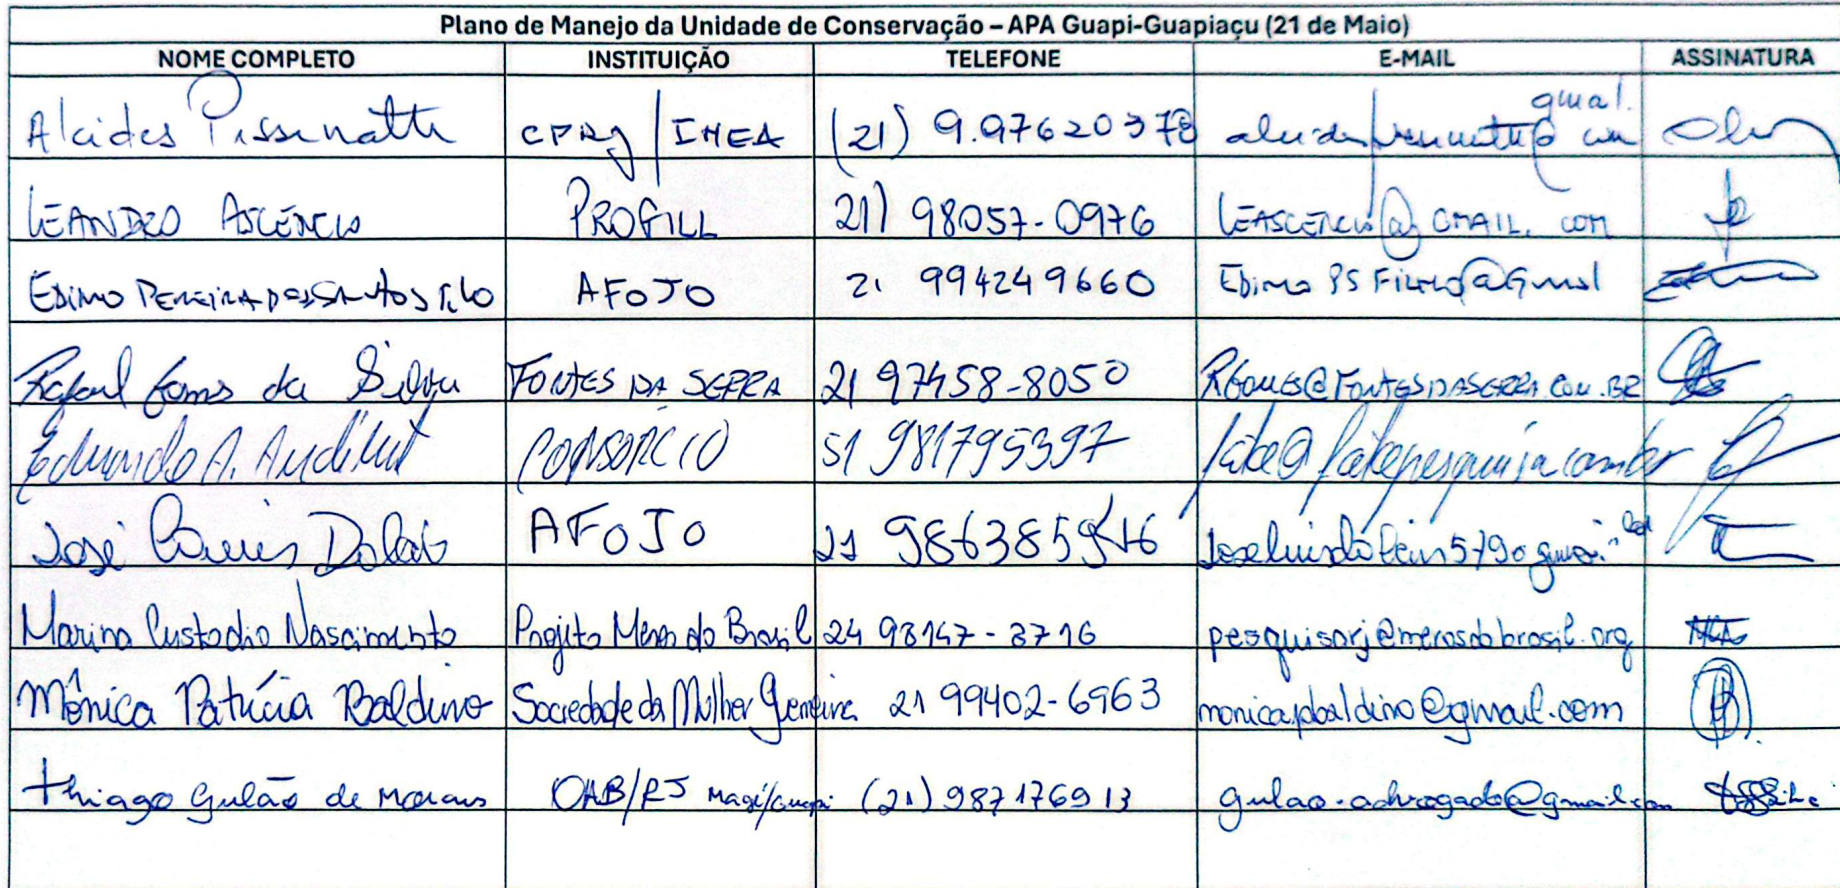 Plano de Manejo da Unidade de Conservação – APA Guapi-Guapiaçu (21 de Maio)
NOME COMPLETO INSTITUIÇÃO TELEFONE E-MAIL ASSINATURA
Alcides Pissinatti CPRJ/INEA (21) 9.97620378 gmail.
LEANDRO ASCÊNCIO PROFILL 21) 98057-0976 LEASCENCIO@GMAIL.COM
EDIMO PEREIRA DOS SANTOS FILHO AFOJO 21 994249660
Rafael Gomes da Silva FONTES DA SERRA 21 97458-8050 RGOMES@FONTESDASERRA.COM.BR
Eduardo A. Audibert CONSÓRCIO 51 981795397
José AFOJO 21
Marina Custodio Nascimento Projeto Meros do Brasil 24 98147-3716 pesquisarj@merosdobrasil.org
Mônica Patrícia Baldino Sociedade da Mulher 21 99402-6963 monicapbaldino@gmail.com
Thiago Gulão de Morais OAB/RJ Magé/Guapi (21) 987176913 gulao.advogado@gmail.com